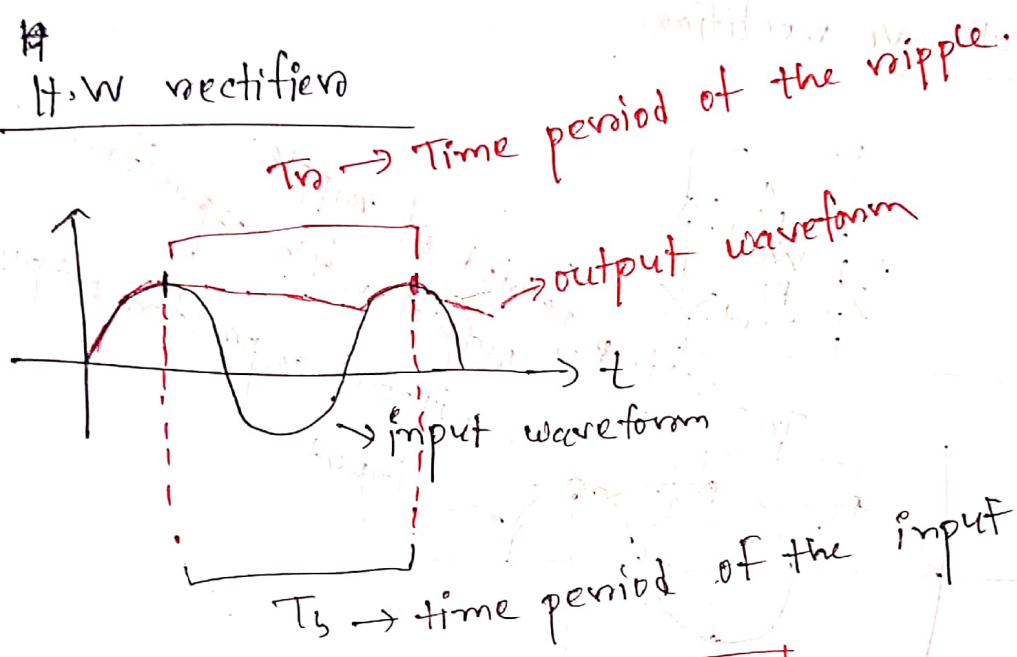 H.W rectifier
Tr → Time period of the ripple.
→ output waveform
→ t
→ input waveform
Ts → time period of the input